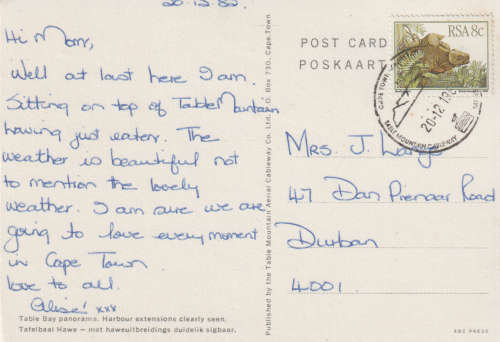 20-12-80.
Hi Mom,
Well at last here I am.
Sitting on top of Table Mountain
having just eaten. The
weather is beautiful not
to mention the lovely
weather. I am sure we are
going to love every moment
in Cape Town
love to all.
xxx
Table Bay panorama. Harbour extensions clearly seen.
Tafelbaai Hawe — met haweuitbreidings duidelik sigbaar.
Published by the Table Mountain Aerial Cableway Co. Ltd., P.O. Box 730, Cape Town
POST CARD
POSKAART
RSA 8c
CAPE TOWN
20-12-19
TABLE MOUNTAIN CABLEWAY
Mrs. J.
47 Dan Pienaar Road
Durban
4001.